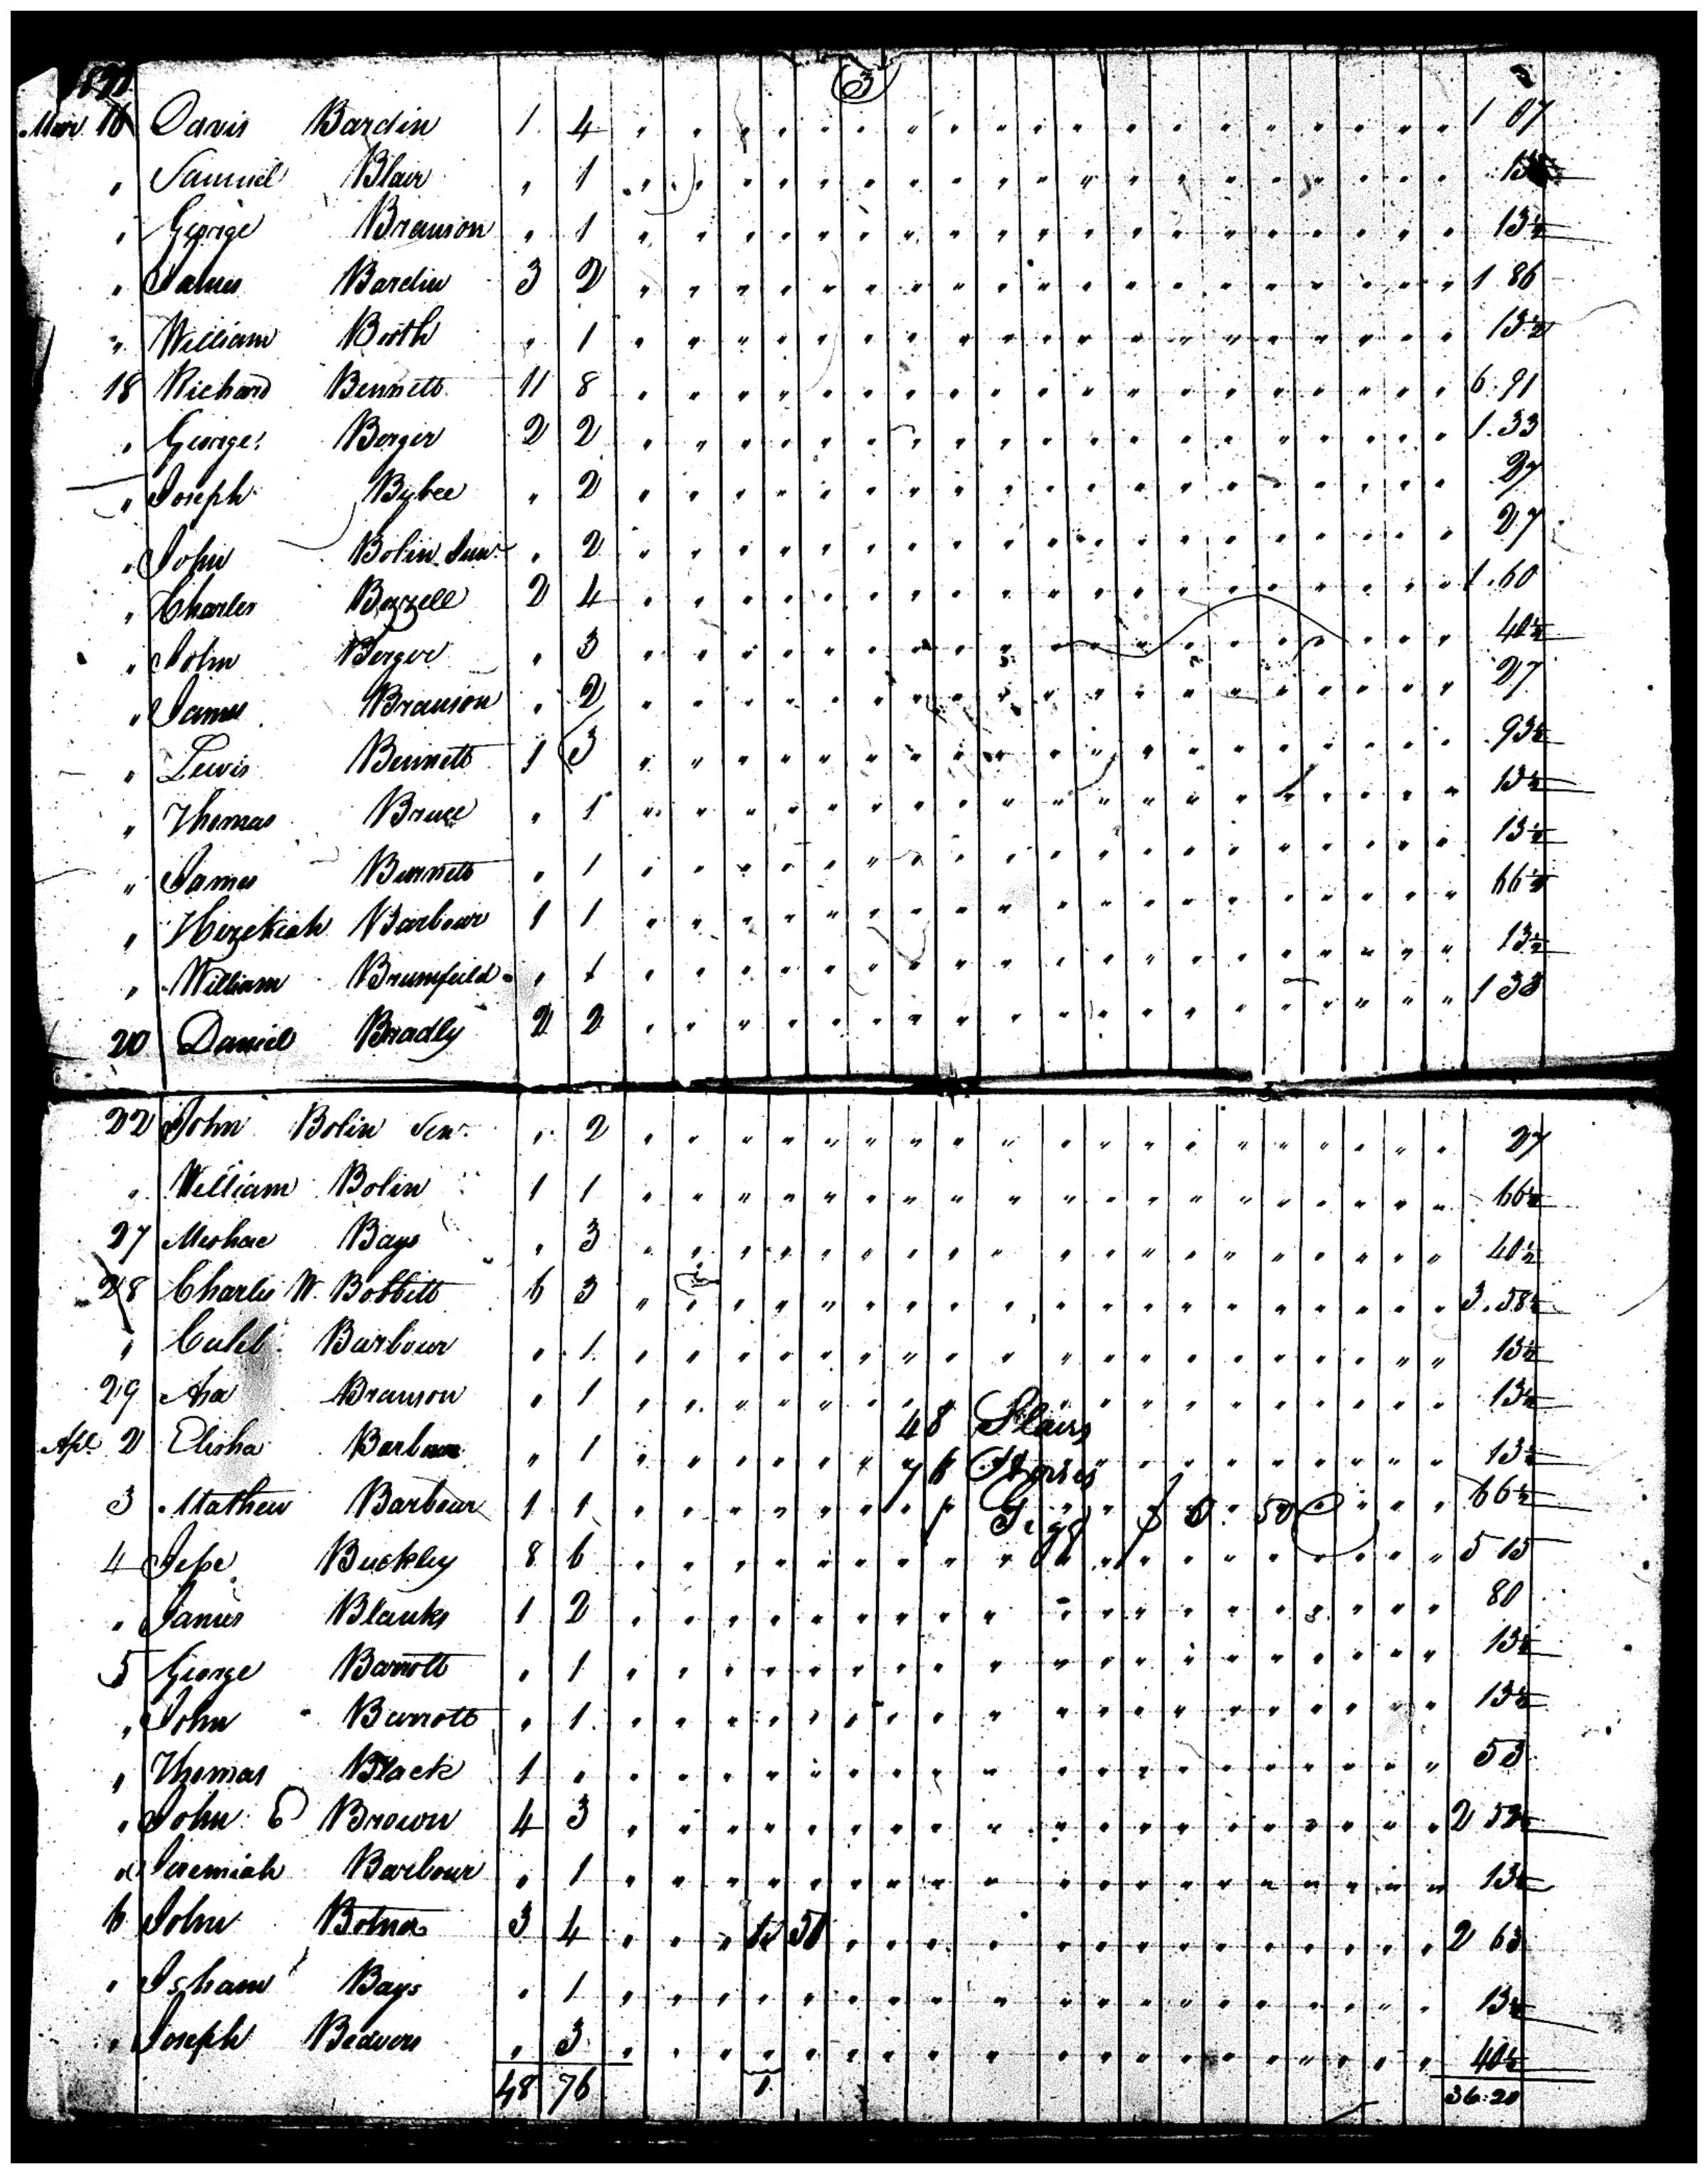 3
Mar. 16 Davis Bardin 1 4 1 07
" Samuel Blair " 1 13½
" George Branson " 1 13½
" James Bardin 3 2 1 86
" William Booth " 1 13½
18 Richard Bennett 11 8 6.91
" George Berger 2 2 1.33
" Joseph Bybee " 2 27
" John Bolin Junr " 2 27
" Charles Bezzell 2 4 1.60
" John Berger " 3 40½
" James Branson " 2 27
" Lewis Bennett 1 3 93½
" Thomas Bruce " 1 13½
" James Bennett " 1 13½
" Hezekiah Barbour 1 1 66½
" William Brumfield " 1 13½
20 Daniel Bradly 2 2 1 33
22 John Bolin Senr " 2 27
" William Bolin 1 1 66½
27 Meshac Bays " 3 40½
28 Charles W. Bobbitt 6 3 3.58½
" Caleb Barbour " 1 13½
29 Asa Branson " 1 13½
48 Slaves
Apl. 2 Elisha Barbour " 1 13½
76 Horses
3 Mathew Barbour 1 1 66½
1 Gigg $ 50
4 Jesse Buckley 8 6 5 15
" James Blanks 1 2 80
5 George Barrott " 1 13½
" John Barrott " 1 13½
" Thomas Black 1 " 53
" John Brown 4 3 2 52½
" Jeremiah Barbour " 1 13½
6 John Botner 3 4 50 2 63
" Isham Bays " 1 13½
" Joseph Beavers " 3 40½
48 76 1 36.20